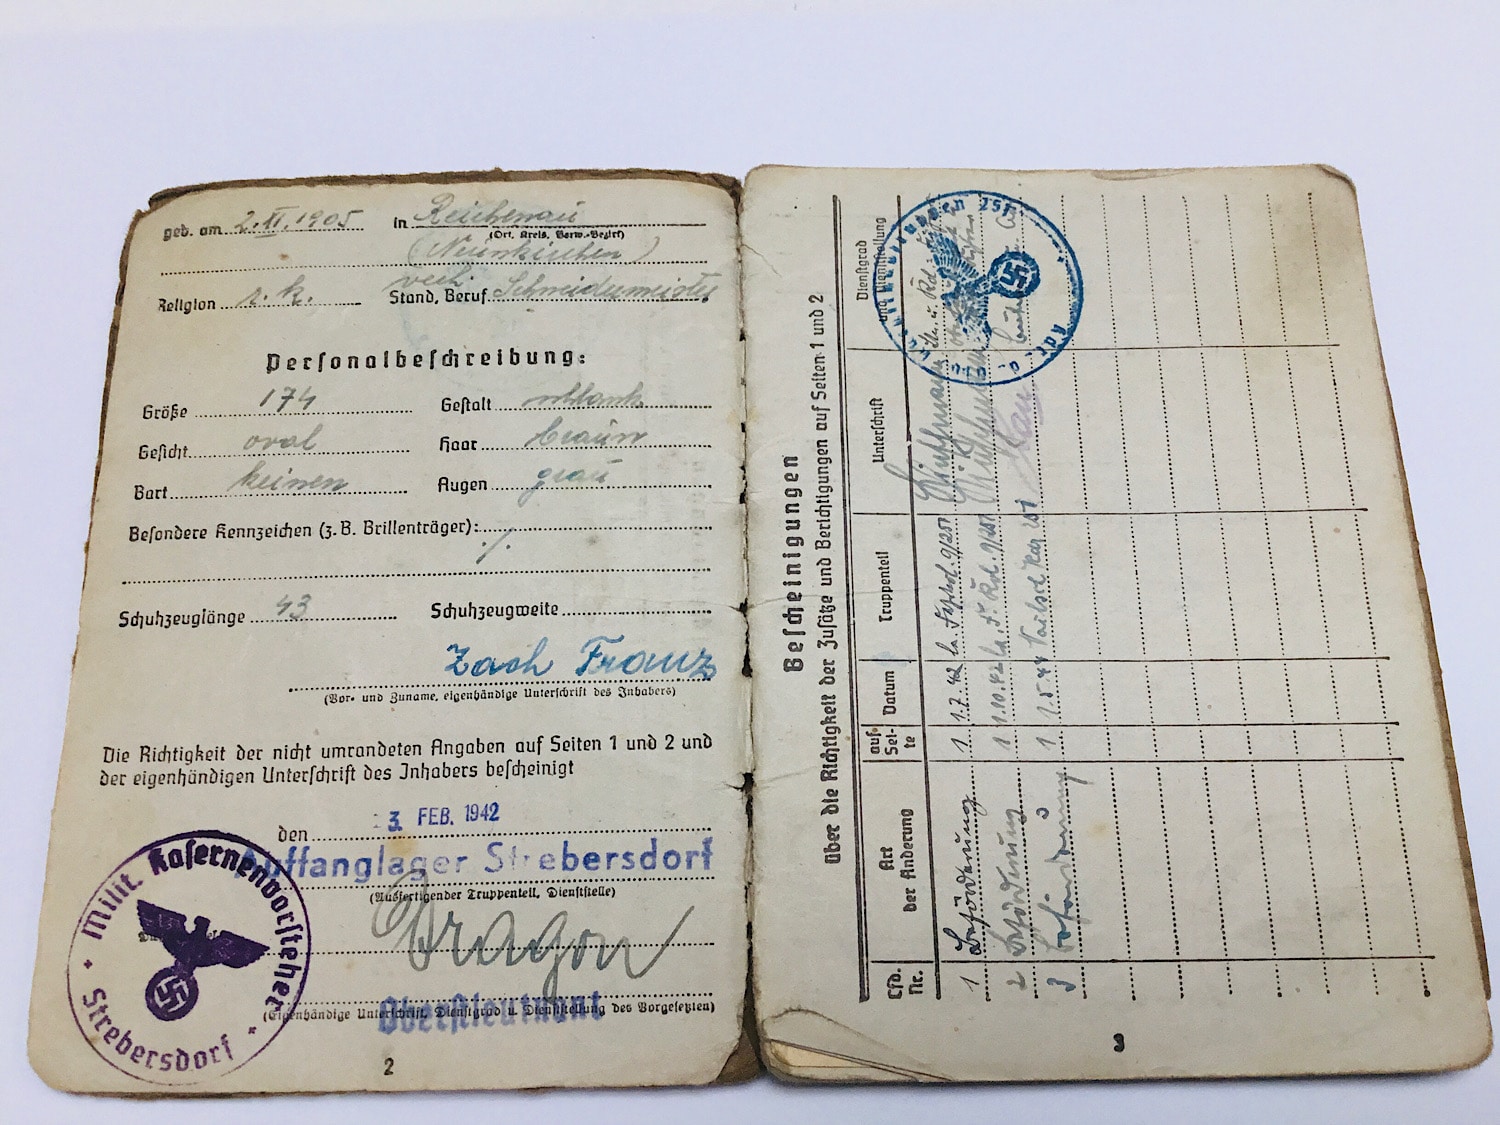 geb. am 2. XI. 1905 in Reichenau
(Ort, Kreis, Verw.-Bezirk)
(Neunkirchen)
Religion r. k. Stand, Beruf verh. Schneidermeister
Personalbeschreibung:
Größe 174 Gestalt schlank
Gesicht oval Haar braun
Bart keinen Augen grau
Besondere Kennzeichen (z. B. Brillenträger): ./.
Schuhzeuglänge 43 Schuhzeugweite
Zach Franz
(Vor- und Zuname, eigenhändige Unterschrift des Inhabers)
Die Richtigkeit der nicht umrandeten Angaben auf Seiten 1 und 2 und
der eigenhändigen Unterschrift des Inhabers bescheinigt
den 3. FEB. 1942
Auffanglager Strebersdorf
(Ausfertigender Truppenteil, Dienststelle)
Dragon
Oberstleutnant
(Eigenhändige Unterschrift, Dienstgrad u. Dienststellung des Vorgesetzten)
Milit. Kasernenvorsteher
Strebersdorf
2
Bescheinigungen
über die Richtigkeit der Zusätze und Berichtigungen auf Seiten 1 und 2
Lfd. Nr. Art der Änderung auf Seite Datum Truppenteil Unterschrift Dienstgrad und Dienststellung
1 Beförderung 1 1.7.42
2 Beförderung 1 1.10.42
3 1 1.5.44
3